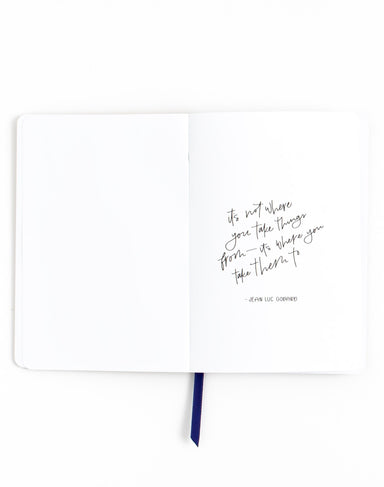 it's not where
you take things
from—it's where you
take them to
- JEAN LUC GODARD